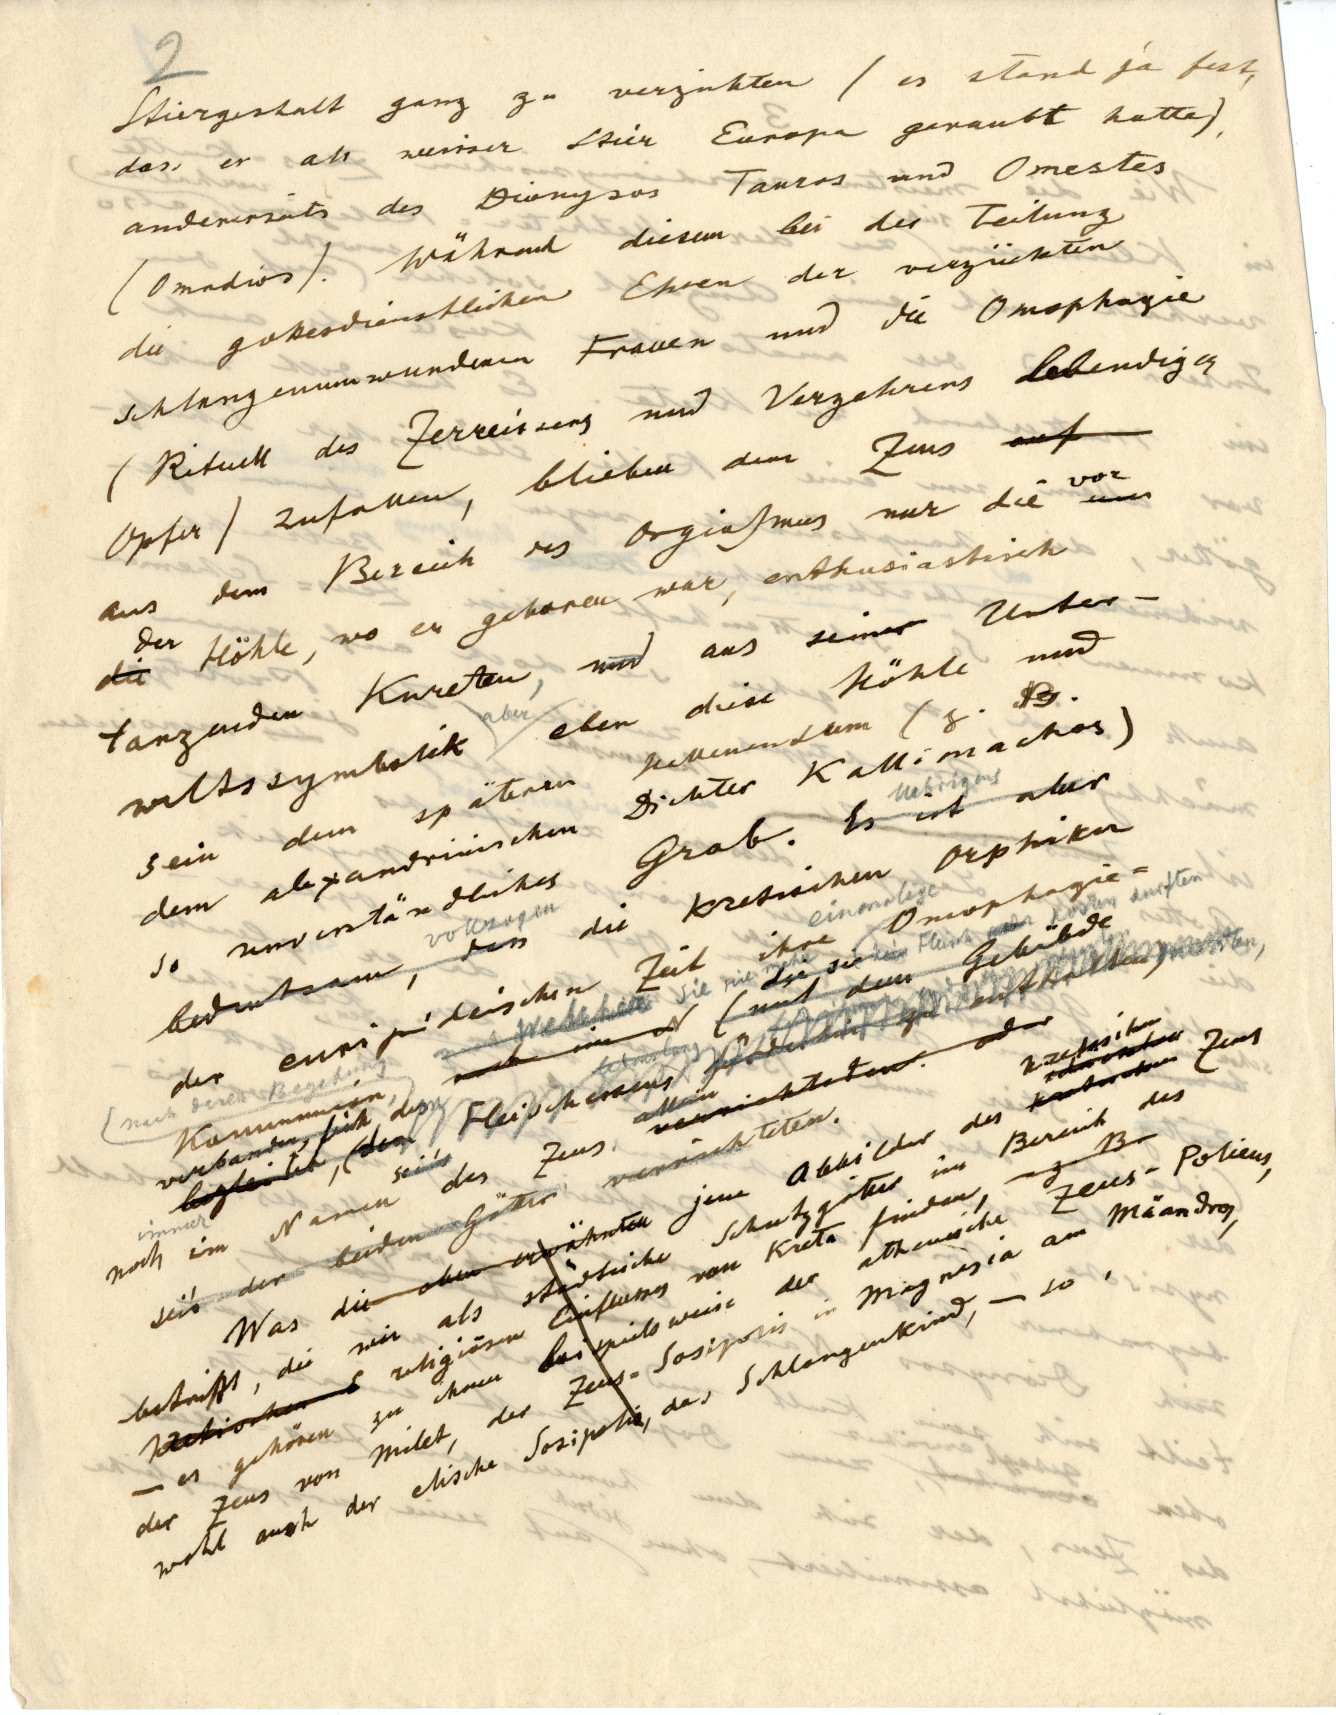 2
Stiergestalt ganz zu verzichten (es stand ja fest,
dass er als weisser Stier Europa geraubt hatte),
andererseits des Dionysos Tauros und Omestes
(Omadios). Während diesem bei der Teilung
die gottesdienstlichen Ehren der verzückten
schlangenumwundenen Frauen und die Omophagie
(Rituell des Zerreissens und Verzehrens lebendiger
Opfer) zufallen, blieben dem Zeus auf
aus dem Bereich des Orgiasmus nur die vor um
der die Höhle, wo er geboren war, enthusiastisch
tanzenden Kureten, und aus seiner Unter-
weltssymbolik aber eben diese Höhle und
sein dem späteren Hellenentum (z. B.
dem alexandrinischen Dichter Kallimachos)
so unverständliches Grab. Es ist aber Uebrigens
bedeutsam, dass die kretischen Orphiker
vollzogen
der euripideischen Zeit ihre einmalige Omophagie-
nach welcher sie nie mehr kein Fleisch kosten durften
Kommunion, noch im N (mit dem Gebübde
(nach deren Begehung
verbanden sich des
begleitet, (dem Fleischessens zu enthalten)
immer
noch im Namen des Zeus allein verrichteten. oder
seis der beiden Götter verrichteten.
Was die oben erwähnten jene Abbilder des kretischen Zeus
betrifft, die wir als städtische Schutzgötter im Bereich des
kretischen religiösen Einflusses von Kreta finden, — z. B.
— es gehören zu ihnen beispielsweise der athenische Zeus-Polieus,
der Zeus von Milet, der Zeus-Sosipolis in Magnesia am Mäandros,
wohl auch der elische Sosipolis, das Schlangenkind, — so